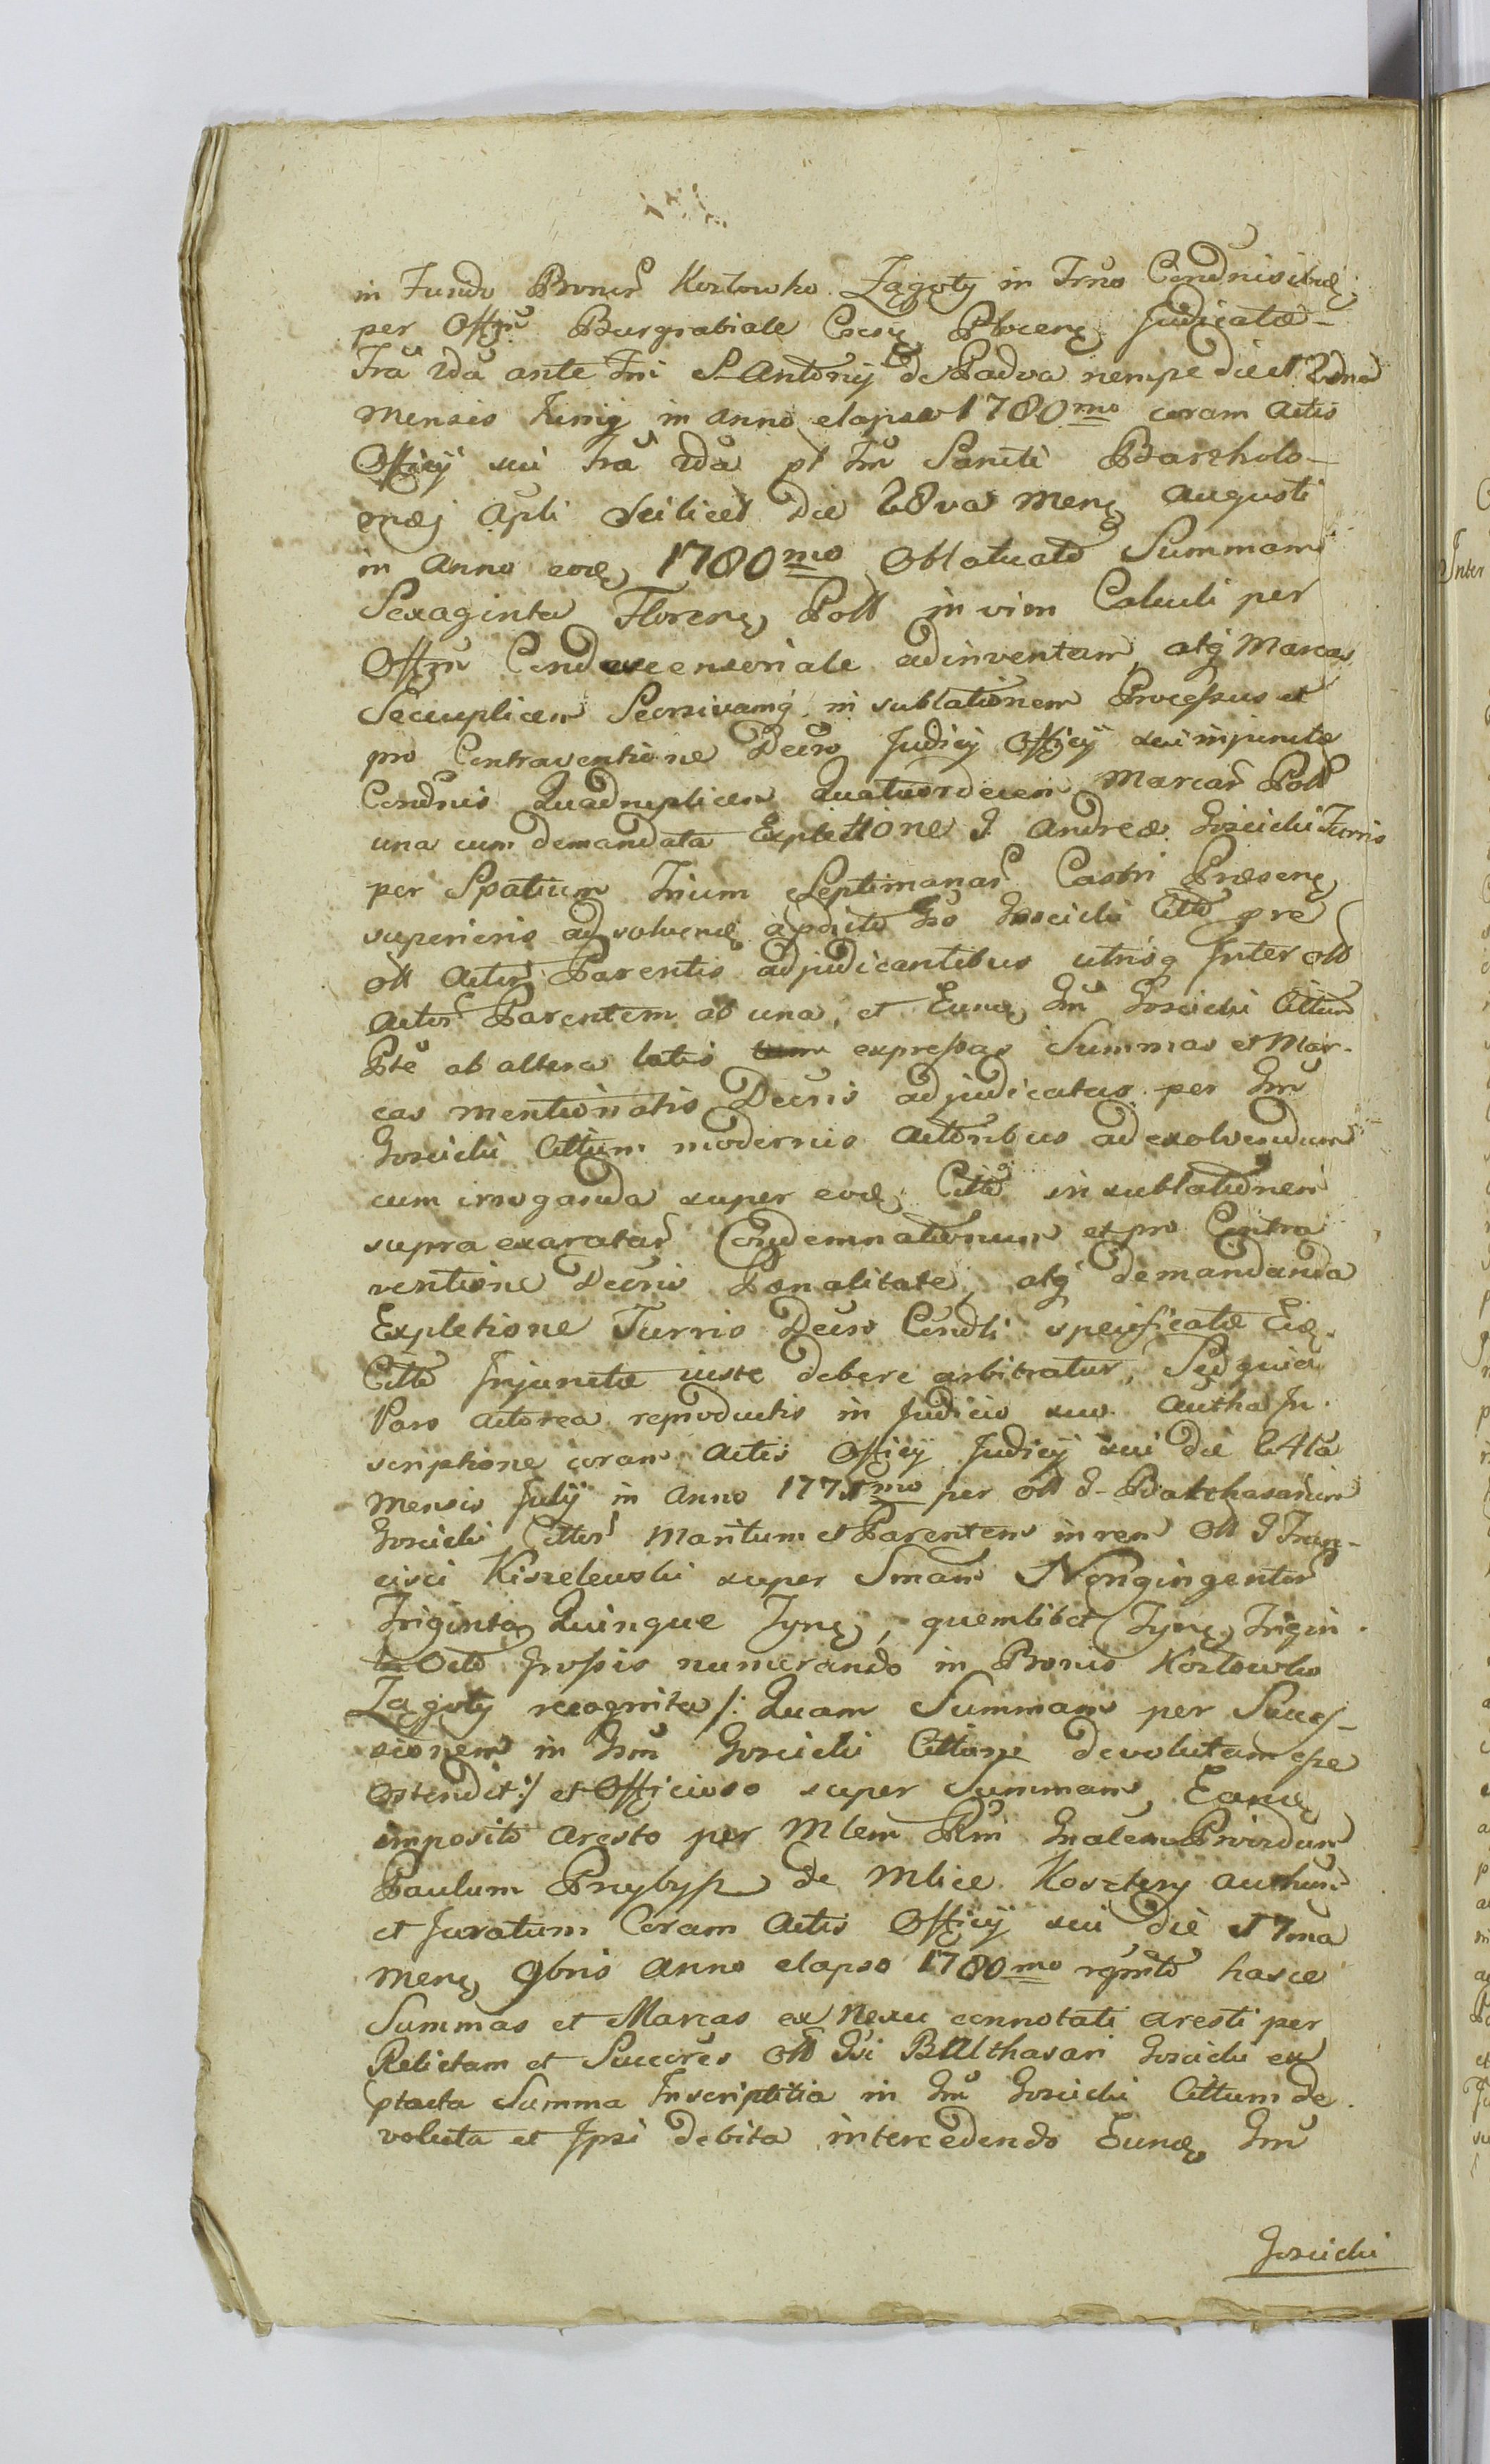 in Fundo Bonor Kozłowko Zągoty in Trno Condnisitne
per Offm Burgrabiale Ploceñ Judicatæ
Fra 2da ante Fm S. Antonij de Padva nempe die 12ma
mensis Junij in anno elapso 1780mo coram actis
Officij sui fra 2da pt Fm Sancti Bartholo-
mæj Apli scilicet die 28va Mens Augusti
in Anno eod 1780mo Oblatuato Summam
Sexaginta Floren Poll in vim Calculi per
Offm Condescensoriale adinventam, atq Marcas
Sexuplicem Seorsivamq in sublationem Processus et
pro Contraventione Decro Judicij Officij sui injunctæ
Condnis Quadruplicem Quatuordecem Marcar Poll
una cum demandata Expletione G. Andreæ Gościcki Turris
per Spatium Trium Septimanar Castri Præsen
superioris adsolven a pdicto Gso Gościcki Citto pre
oll Actor Parentis adjudicantibus utrisq Inter oll
Actor Parentem ab una, et Eund Gm Gościcki Cittum
Pte ab altera latis expressas Summas et Mar-
cas mentionatis Decris adjudicatas per Gm
Gościcki Cittum modernis Actoribus ad exolvendum
cum irroganda super eod Citto in sublationem
supra exaratar Condemnationum et pro Contra
ventione Decris Pænalitate, atq demandanda
Expletione Turris Decro Condli specificatæ Eid
Citto Injunctæ iuste debere arbitratur, Sed quia
Pars actorea reproductis in Judicio suo Autha In-
scriptione coram Actis Officij Judicij sui die 24ta
mensis Julij in Anno 1775mo per oll G. Balthasarum
Gościcki Cittor Maritum et Parentem in rem Oll G Fran-
cisci Kiszelewski super Smam Nongingentor
Triginta Quinque Tyn, quemlibet Tyn Trigin
ta Octo Grossis numerando in Bonis Kozłowko
Zągoty recognita /: Quam Summam per Succes-
sionem in Gsm Gościcki Cittum devolutam esse
Ostendit :/ et Officioso super Summam Eand
imposito Aresto per Mlem Rm Gnalem Prvidum
Paulum Przybysz de Mlice Kosztery authum
et Juratum Coram Actis Officij sui die 17ma
Mens 9bris Anno elapso 1780mo rgnito hasce
Summas et Marcas ex Nexu connotati aresti per
Relictam et Succores Oll Gsi Balthasari Gościcki ex
ptacta Summa Inscriptitia in Gm Gościcki Cittum de-
voluta et Ipsi debita intercedendo Eund Gm
Gościcki